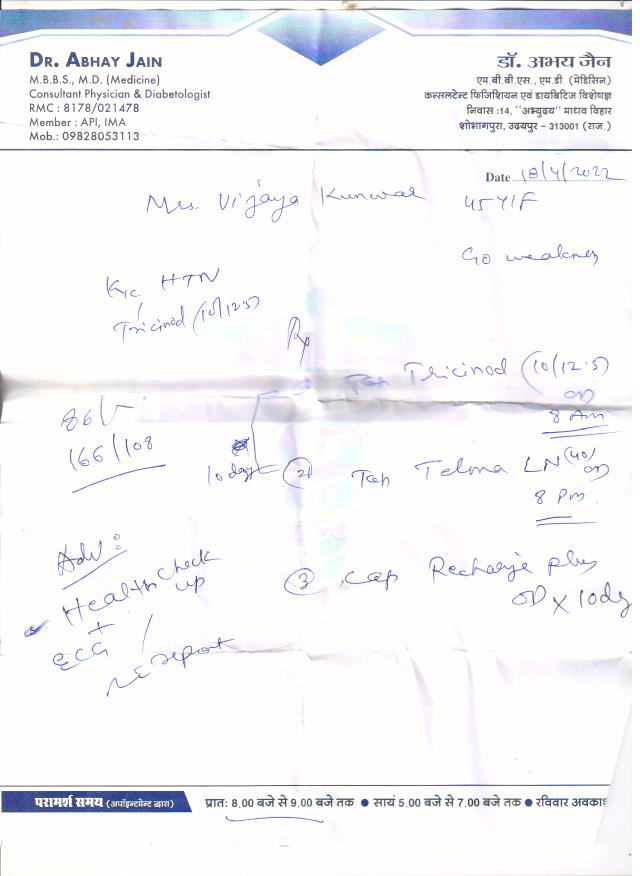 DR. ABHAY JAIN
M.B.B.S., M.D. (Medicine)
Consultant Physician & Diabetologist
RMC : 8178/021478
Member : API, IMA
Mob.: 09828053113
डॉ. अभय जैन
एम.बी.बी.एस., एम.डी. (मेडिसिन)
कन्सलटेन्ट फिजिशियन एवं डायबिटिज विशेषज्ञ
निवास :14, "अभ्युदय" माधव विहार
शोभागपुरा, उदयपुर - 313001 (राज.)
Date 18/4/2022
Mrs. Vijaya Kunwar 45Y/F
C/o weakness
K/c HTN
Tricinod (10/12.5)
Rx
Tab Tricinod (10/12.5)
OD
8 Am
166/108
10 days (2) Tab Telma LN (40) OD
8 Pm
Adv:
Health Check up
+
ECG
report
(3) Cap Recharge plus
OD x 10 day
परामर्श समय (अपॉइन्टमेन्ट द्वारा) प्रात: 8.00 बजे से 9.00 बजे तक ● सायं 5.00 बजे से 7.00 बजे तक ● रविवार अवकाश